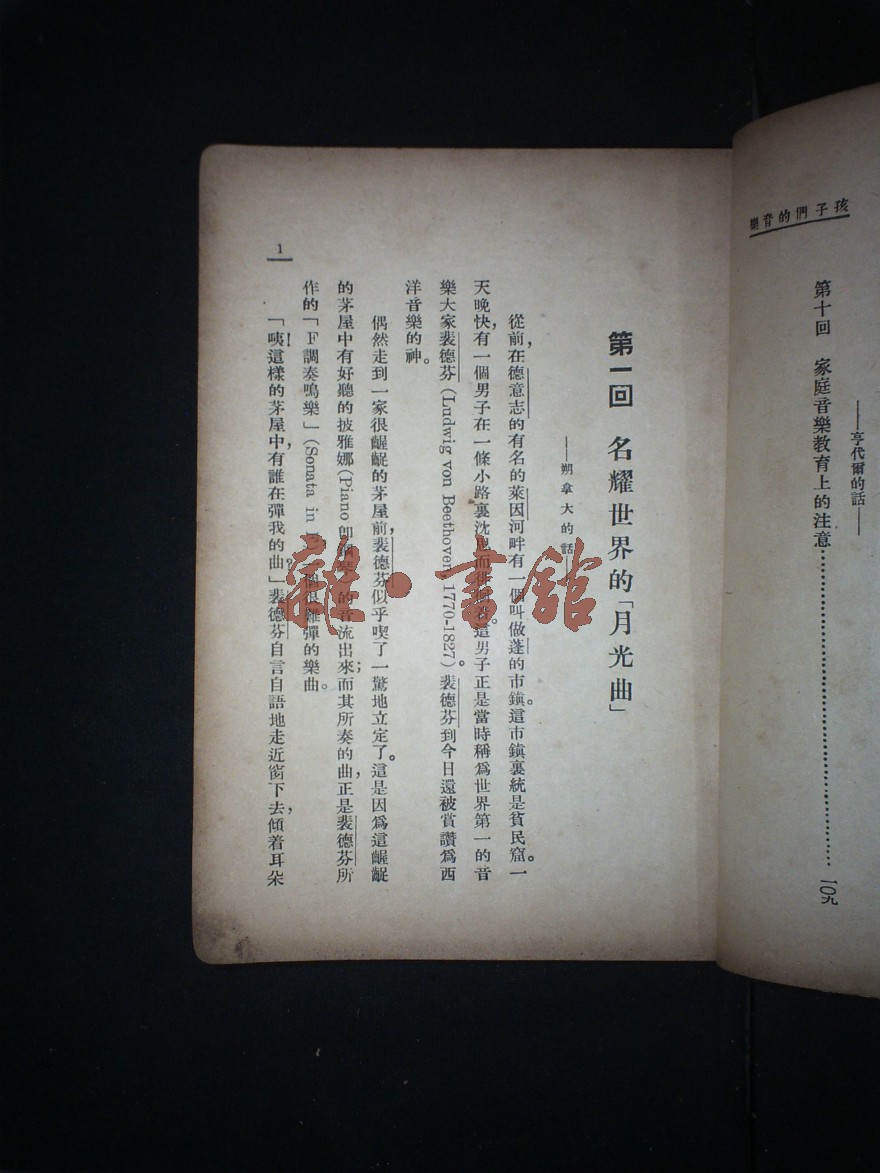 孩子們的音樂
第十回 家庭音樂教育上的注意……一〇九
——亨代爾的話——
第一回 名耀世界的「月光曲」
——朔拿大的話——
從前，在德意志的有名的萊因河畔有一個叫做蓬的市鎮。這市鎮裏統是貧民窟。一
天晚快，有一個男子在一條小路裏沈思而徘徊着。這男子正是當時稱爲世界第一的音
樂大家裴德芬(Ludwig von Beethoven, 1770-1827)。裴德芬到今日還被賞讚爲西
洋音樂的神。
偶然走到一家很齷齪的茅屋前，裴德芬似乎喫了一驚地立定了。這是因爲這齷齪
的茅屋中有好聽的披雅娜(Piano 卽鋼琴)的音流出來；而其所奏的曲，正是裴德芬所
作的「F調奏鳴樂」(Sonata in 一個很難彈的樂曲。
「咦！這樣的茅屋中，有誰在彈我的曲？」裴德芬自言自語地走近窗下去，傾着耳朵
1
雜·書館